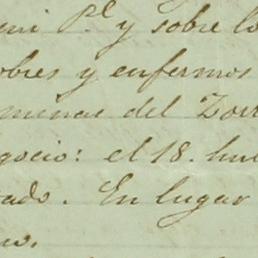 y sobre lo
obres y enfermos
minas del Zorr
gocio: el 18. hu
ado. En lugar